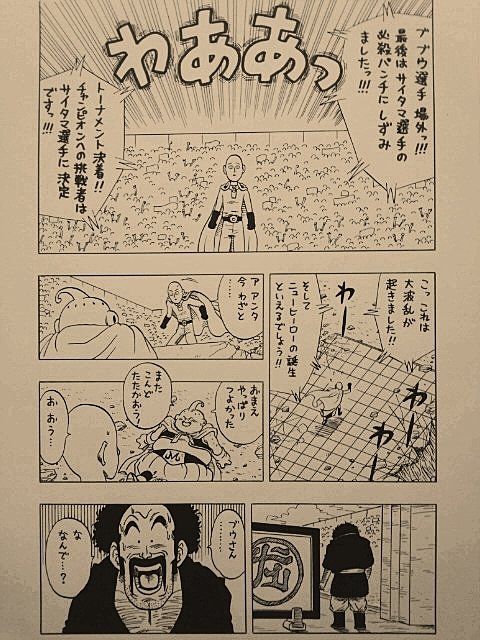 ブ ブウ選手 場外っ!!!
最後はサイタマ選手の
必殺パンチに しずみ
ましたっ!!!
わああっ
トーナメント決着!!
チャンピオンへの挑戦者は
サイタマ選手に 決定
ですっ!!!
こっ これは
大波乱が
起きました!!
わー
そして
ニューヒーローの誕生
といえるでしょう!!
わー
わー
ア アンタ
今 わざと
……
おまえ
やっぱり
つよかった
また
こんど
たたかおう
お おう…
ブウさん
……
な
なんで…?